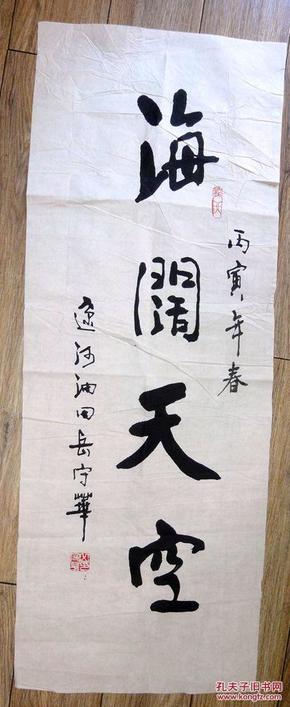 丙寅年春
海闊天空
遼河油田岳守華
孔夫子旧书网